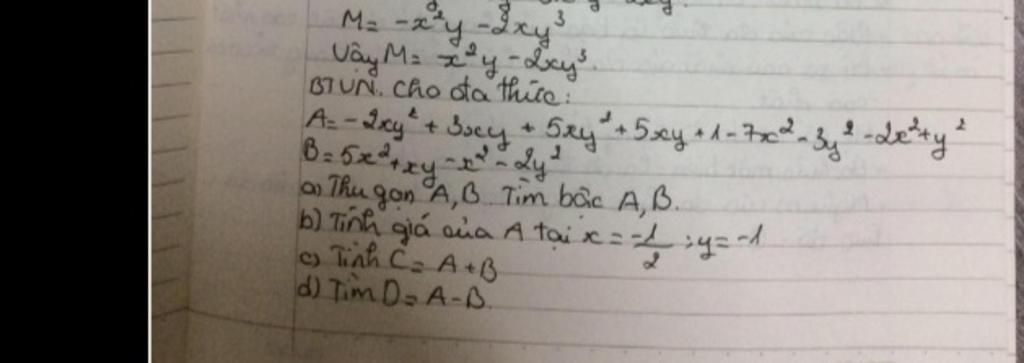 M= -x²y -2xy³
Vậy M= x²y -2xy³.
BTVN. Cho đa thức:
A= -2xy² + 3xy + 5xy² + 5xy + 1 - 7x² - 3y² - 2x² + y²
B= 5x² + xy - x² - 2y²
a) Thu gọn A, B. Tìm bậc A, B.
b) Tính giá của A tại x = -1/2 ; y = -1
c) Tính C = A + B
d) Tìm D = A - B.